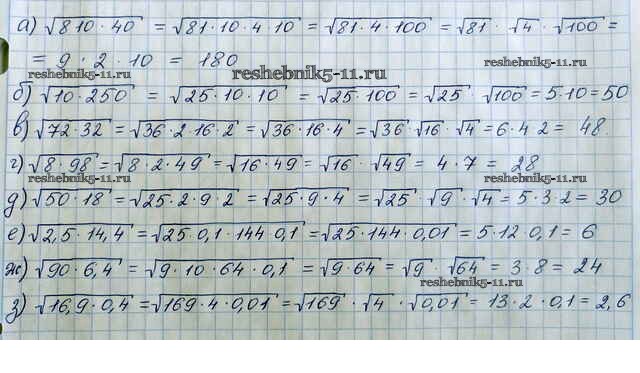 а) √810·40 = √81·10·4·10 = √81·4·100 = √81 · √4 · √100 =
= 9 · 2 · 10 = 180
reshebnik5-11.ru reshebnik5-11.ru reshebnik5-11.ru
б) √10·250 = √25·10·10 = √25·100 = √25 · √100 = 5·10 = 50
в) √72·32 = √36·2·16·2 = √36·16·4 = √36·√16·√4 = 6·4 2 = 48.
г) √8·98 = √8·2·49 = √16·49 = √16 · √49 = 4·7 = 28
reshebnik5-11.ru reshebnik5-11.ru
д) √50·18 = √25·2·9·2 = √25·9·4 = √25 · √9 · √4 = 5·3·2 = 30
е) √2,5·14,4 = √25·0,1·144·0,1 = √25·144·0,01 = 5·12·0,1 = 6
ж) √90·6,4 = √9·10·64·0,1 = √9·64 = √9 · √64 = 3·8 = 24
reshebnik5-11.ru
з) √16,9·0,4 = √169·4·0,01 = √169 · √4 · √0,01 = 13·2·0,1 = 2,6